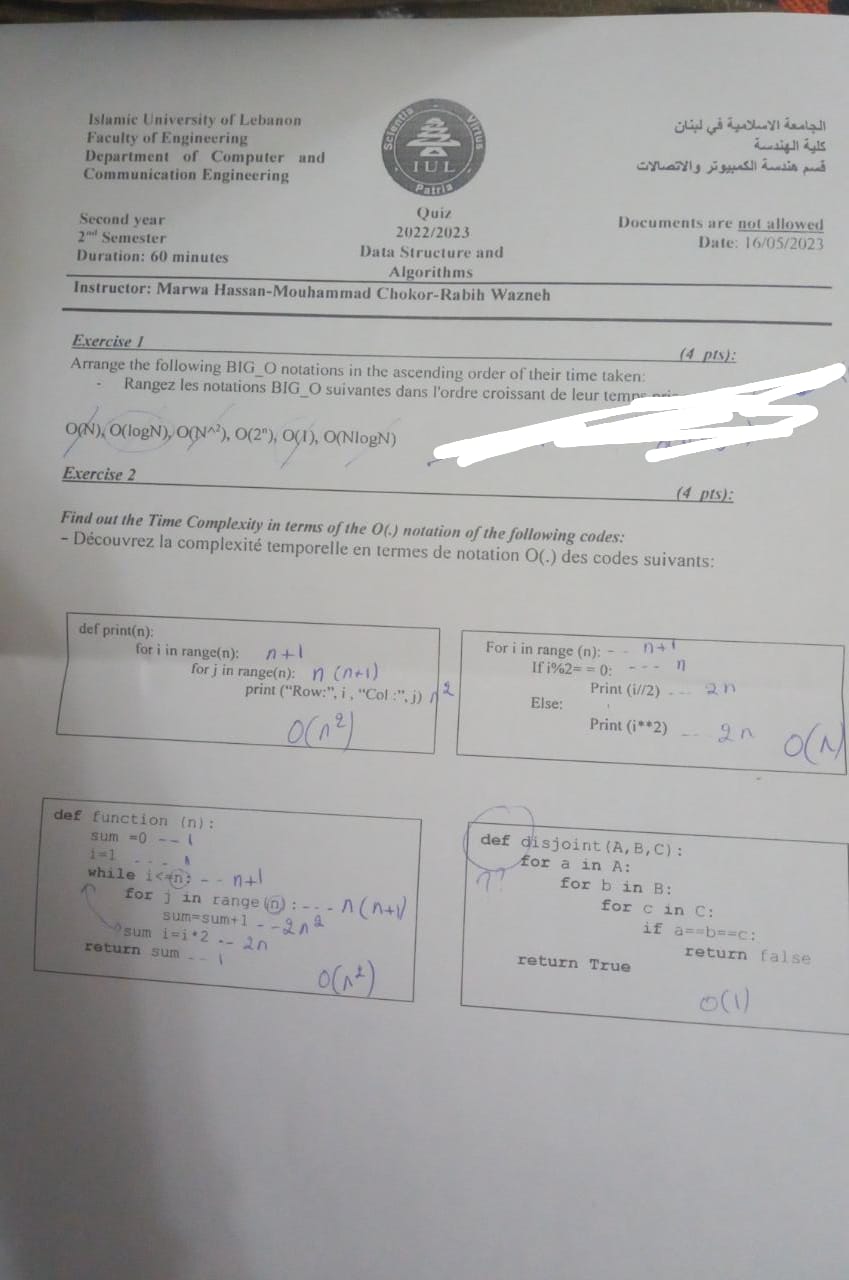 Islamic University of Lebanon
Faculty of Engineering
Department of Computer and
Communication Engineering
Scientia Virtus
IUL
Patria
الجامعة الاسلامية في لبنان
كلية الهندسة
قسم هندسة الكمبيوتر والاتصالات
Second year
2nd Semester
Duration: 60 minutes
Quiz
2022/2023
Data Structure and
Algorithms
Documents are not allowed
Date: 16/05/2023
Instructor: Marwa Hassan-Mouhammad Chokor-Rabih Wazneh
Exercise 1 (4 pts):
Arrange the following BIG_O notations in the ascending order of their time taken:
- Rangez les notations BIG_O suivantes dans l'ordre croissant de leur temps
O(N), O(logN), O(N^2), O(2ⁿ), O(1), O(NlogN)
Exercise 2 (4 pts):
Find out the Time Complexity in terms of the O(.) notation of the following codes:
- Découvrez la complexité temporelle en termes de notation O(.) des codes suivants:
def print(n):
for i in range(n): n+1
for j in range(n): n (n+1)
print ("Row:", i , "Col :", j) n²
O(n²)
For i in range (n): - - n+1
If i%2= = 0: - - - n
Print (i//2) -- 2n
Else:
Print (i**2) -- 2n
O(N)
def function (n):
sum =0 -- 1
i=1 ---- 1
while i<=n: -- n+1
for j in range(n):--- n(n+1)
sum=sum+1 --2n²
sum i=i*2 -- 2n
return sum -- 1
O(n²)
def disjoint(A,B,C):
??
for a in A:
for b in B:
for c in C:
if a==b==c:
return false
return True
O(1)